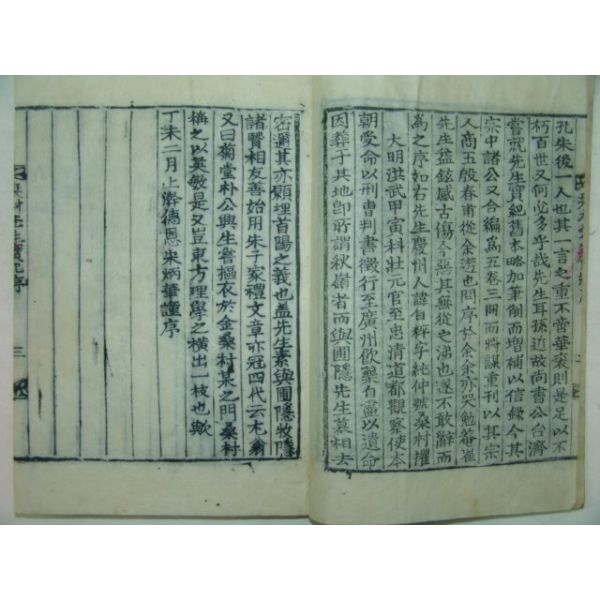 孔朱後一人也其一言之重不啻華袞則是足以不
朽百世又何必多乎哉先生耳孫近故尚書公台濟
嘗就先生實紀舊本略加筆削而增補以信緣今其
宗中諸公又合編爲五卷三冊而將謀重刊以其宗
人商五殷春甫從余遊也問序於余余亦哭勉菴崔
先生益鉉感古傷今無其從之涕也遂不敢辭而
爲之序如右先生慶州人諱自粹字純仲號桑村擢
大明洪武甲寅科壯元官至忠清道都觀察使本
朝受命以刑曹判書徵行至廣州飮藥自盡以遺命
因葬于其地卽所謂秋嶺者而與圃隱先生墓相去
密邇其亦願埋首陽之義也盖先生素與圃隱牧隱
諸賢相友善始用朱子家禮文章亦冠四代云尤翁
又曰菊堂朴公興生嘗摳衣於金桑村某之門桑村
稱之以英敏是又豈東方理學之橫出一枝也歟
丁未二月上澣德恩宋炳華謹序